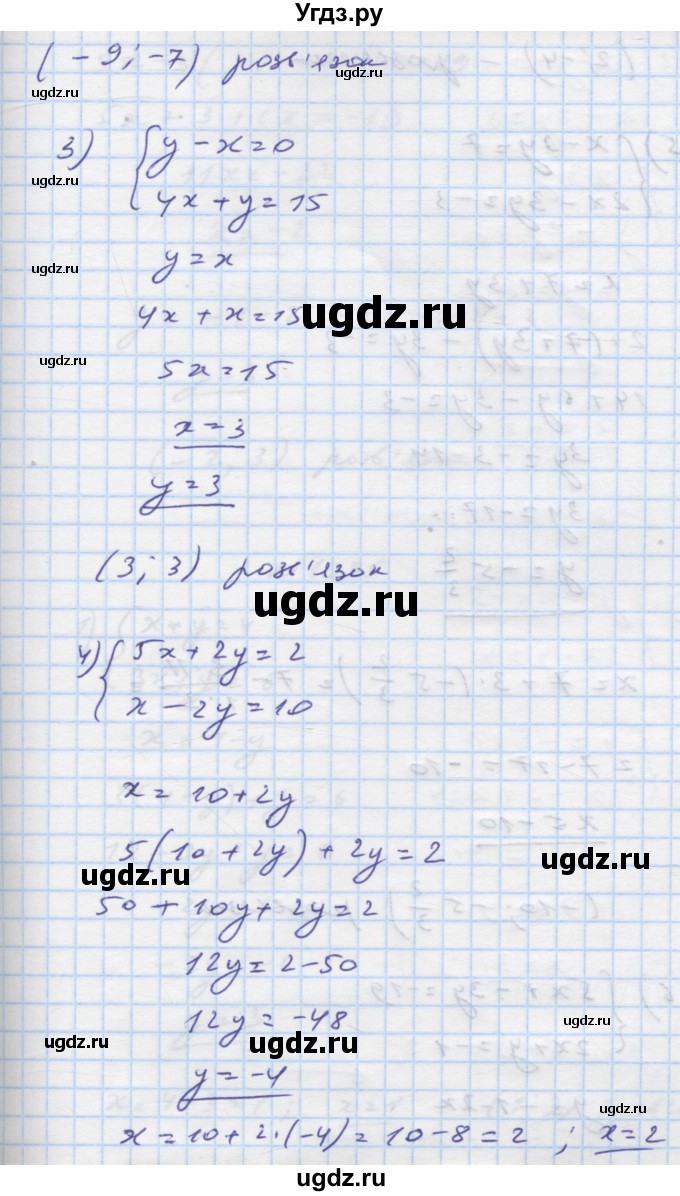 Угдз.ру
(-9; -7) розв'язок
ugdz.ru
3) { y - x = 0
ugdz.ru
4x + y = 15
y = x
ugdz.ru
4x + x = 15
ugdz.ru
ugdz.ru
5x = 15
x = 3
y = 3
(3; 3) розв'язок
ugdz.ru
4) { 5x + 2y = 2
x - 2y = 10
x = 10 + 2y
5(10 + 2y) + 2y = 2
ugdz.ru
ugdz.ru
50 + 10y + 2y = 2
12y = 2 - 50
12y = -48
ugdz.ru
ugdz.ru
ugdz.ru
y = -4
ugdz.ru
x = 10 + 2·(-4) = 10 - 8 = 2 ; x = 2
ugdz.ru